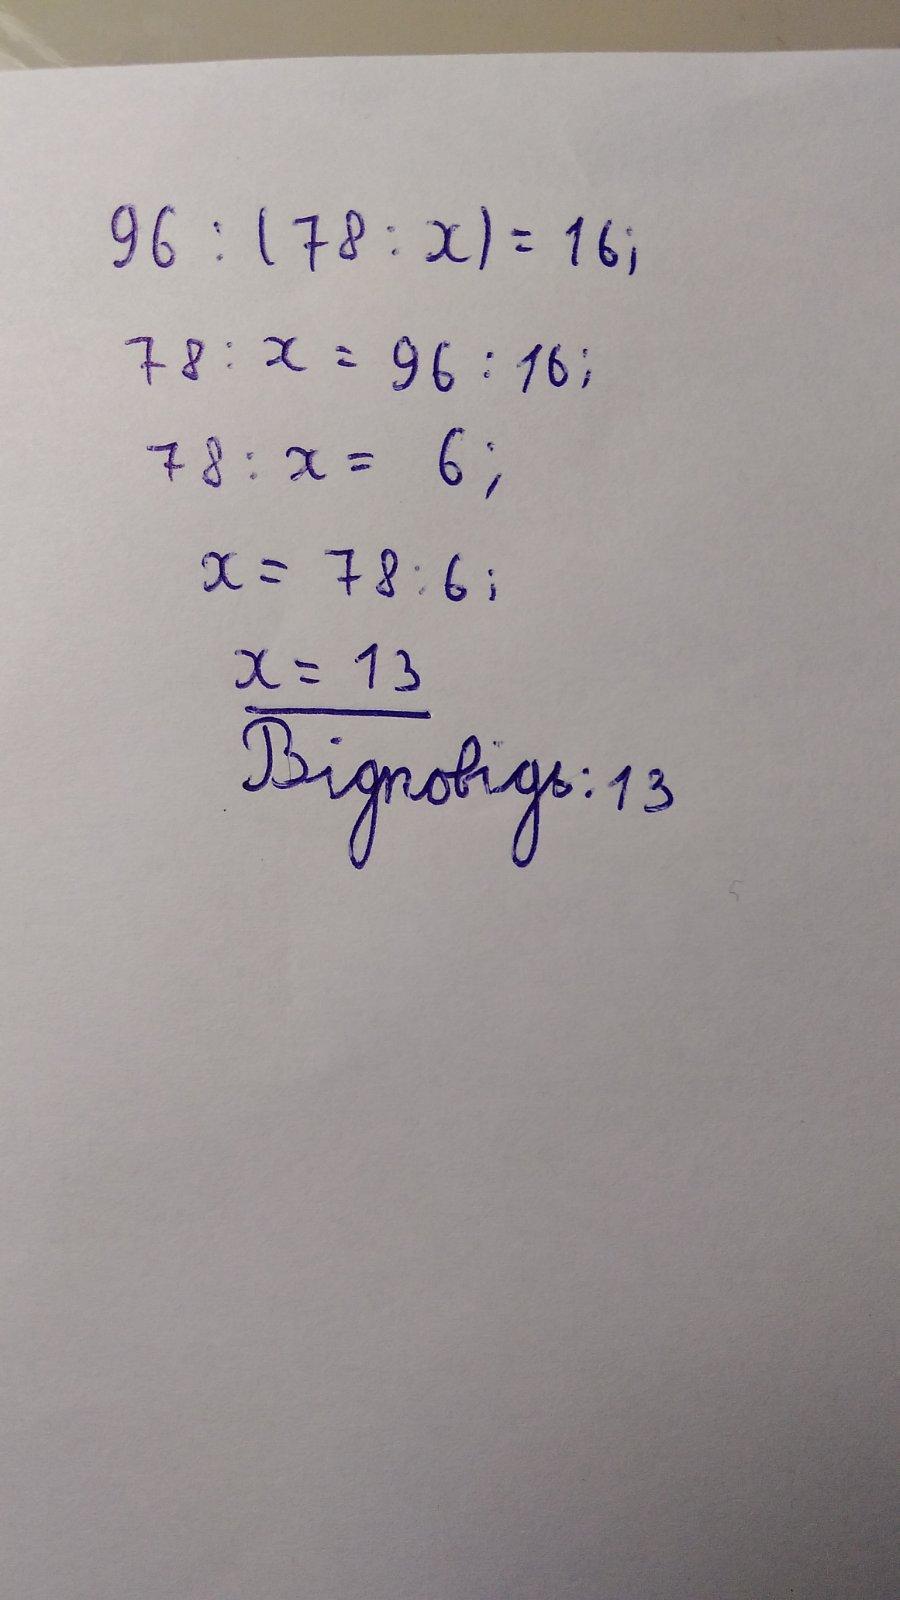 96 : (78 : x) = 16;
78 : x = 96 : 16;
78 : x = 6;
x = 78 : 6;
x = 13
Відповідь: 13